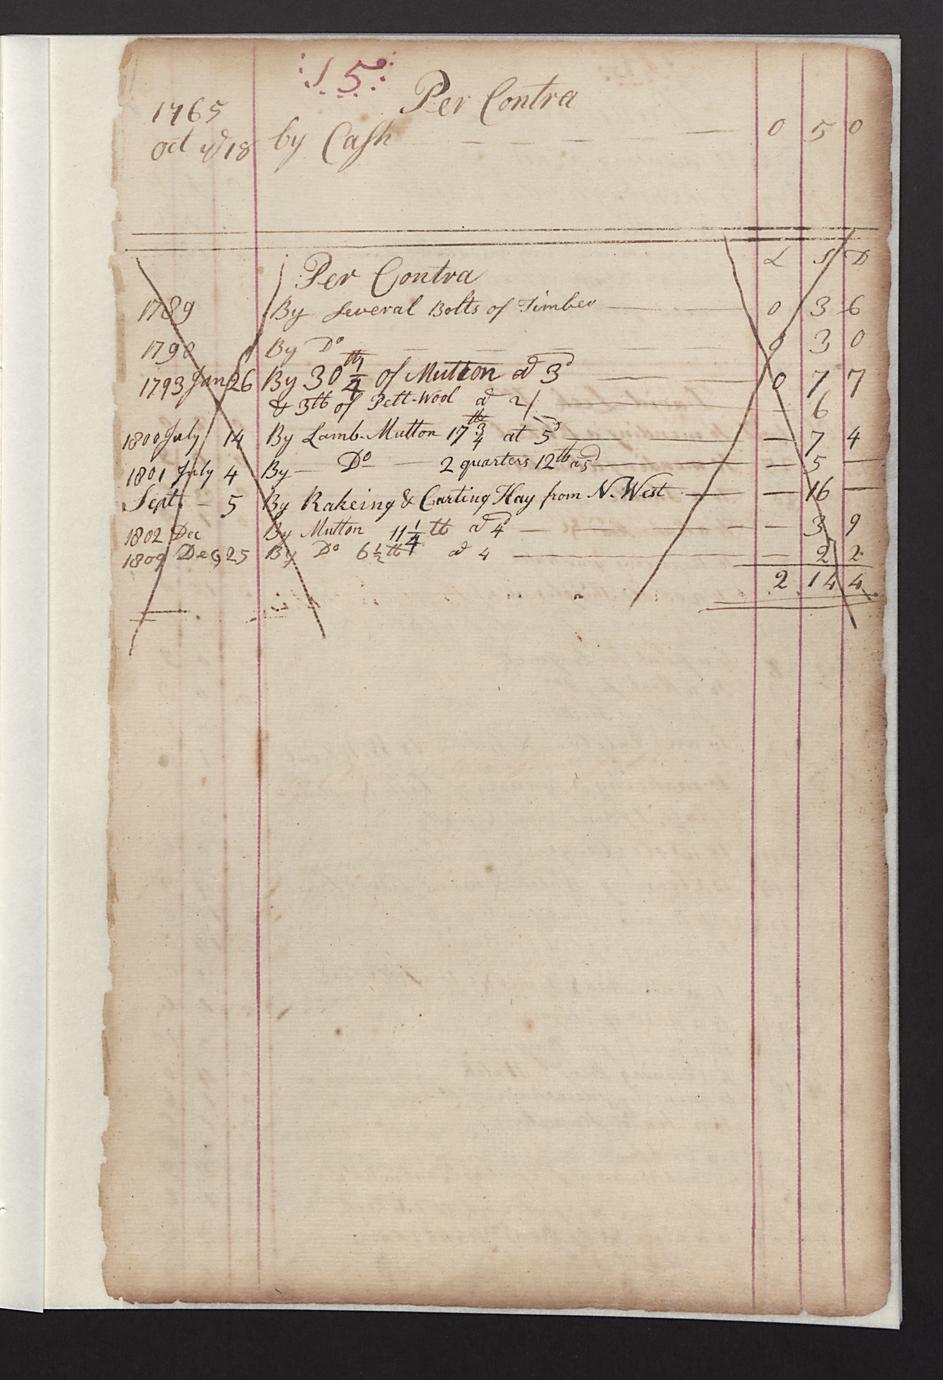 :15:
Per Contra
1765
Oct ye 18 by Cash — — — — 0 5 0
L S D
Per Contra
1789 By Several Bolts of Timber — 0 3 6
1790 By Do — 0 3 0
1793 Jan 26 By 30 1/4 th of Mutton at 3d — 0 7 7
& 3 tb of Pelt-Wool at 2/ — 6
1800 July 14 By Lamb-Mutton 17 3/4 th at 5d — 7 4
1801 July 4 By — Do — 2 quarters 12 th at 5d — 5 —
Sept - 5 By Rakeing & Carting Hay from N. West — 16 —
1802 Dec By Mutton 11 1/4 tb at 4d — 3 9
1809 Dec 25 By Do 6 1/2 tb at 4 — 2 2
2 14 4